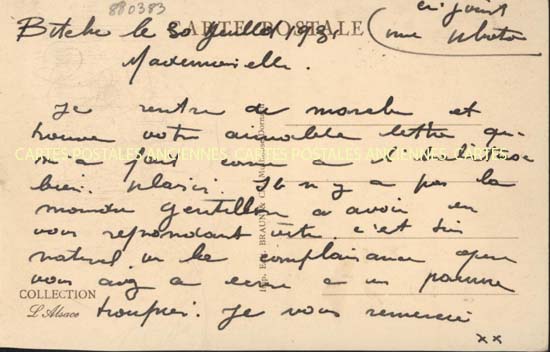 880383
ci-joint
une photo
Bitche le 30 Juillet 193
CARTE POSTALE
Mademoiselle.
Je rentre de marche et
trouve votre aimable lettre qui
m'a fait
CARTES POSTALES ANCIENNES, CARTES POSTALES ANCIENNES, CARTES
bien plaisir. Il n y a pas la
moindre gentillesse a avoir en
vous repondant vite. c'est
naturel vu la complaisance que
vous avez a ecrire a un pauvre
troupier. Je vous remercie
xx
COLLECTION
L'Alsace
Imp. BRAUN & C